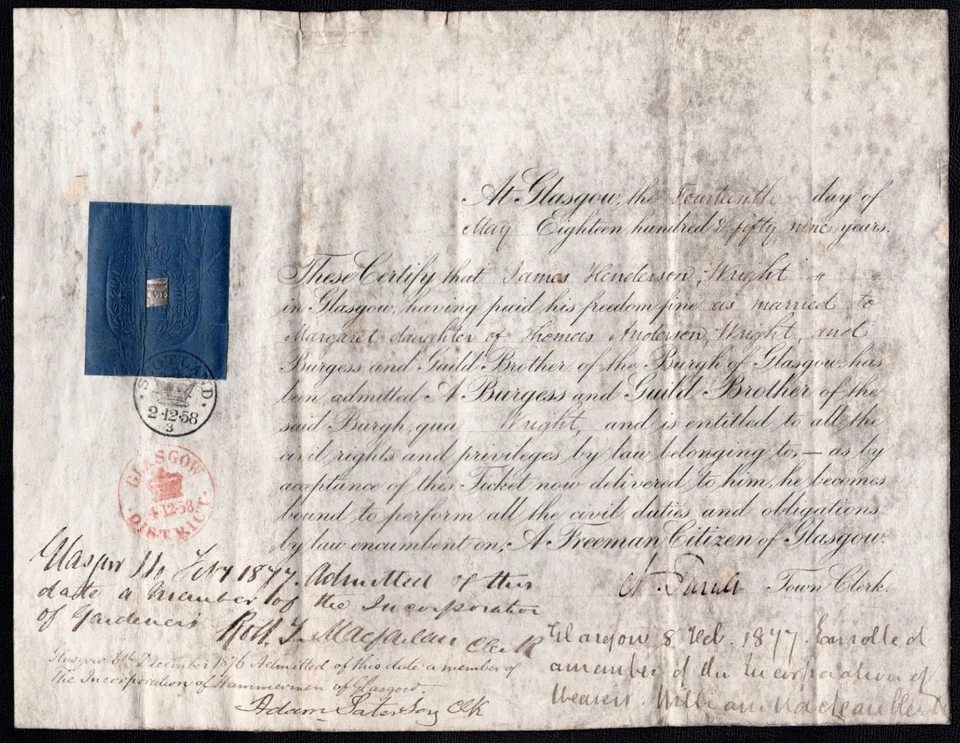 At Glasgow, the Fourteenth day of
May Eighteen hundred & fifty nine years.
These Certify that James Henderson, Wright " "
in Glasgow, having paid his freedom fine as married to
Margaret daughter of Thomas Anderson, Wright, and
Burgess and Guild Brother of the Burgh of Glasgow has
been admitted A Burgess and Guild Brother of the
said Burgh, qua Wright, and is entitled to all the
civil rights and privileges by law belonging to,— as by
acceptance of this Ticket now delivered to him, he becomes
bound to perform all the civil duties and obligations
by law encumbent on, A Freeman Citizen of Glasgow.
Town Clerk.
SCOTLAND
2·12·58
3
GLASGOW
4·12·58
DISTRICT
Glasgow Feby 1877. Admitted of this
date a member of the Incorporation
of Gardeners
Robt Macfarlan Clerk
Glasgow December 1876 Admitted of this date a member of
the Incorporation of Hammermen of Glasgow.
Adam Paterson Clk
Glasgow 8 Feb. 1877. Enrolled
a member of the Incorporation of
Weavers. William Maclean Clerk